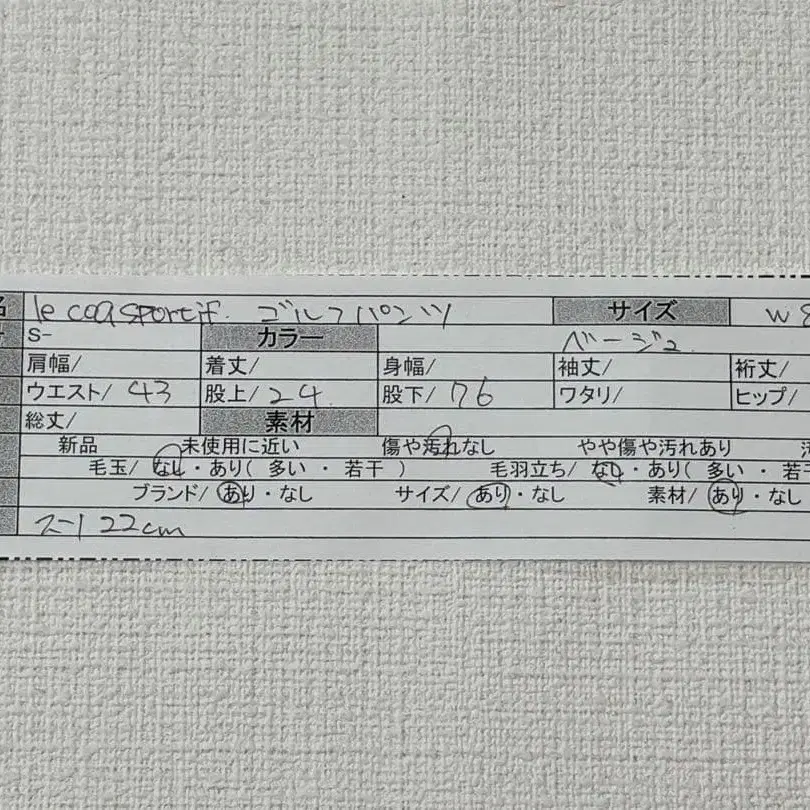 名 le coq sportif. ゴルフパンツ サイズ W8
S- カラー ベージュ
肩幅/ 着丈/ 身幅/ 袖丈/ 裄丈/
ウエスト/ 43 股上/ 24 股下/ 76 ワタリ/ ヒップ/
総丈/ 素材
新品 未使用に近い 傷や汚れなし やや傷や汚れあり
毛玉/ なし・あり( 多い ・ 若干 ) 毛羽立ち/ なし・あり( 多い ・ 若干
ブランド/ あり・なし サイズ/ あり・なし 素材/ あり・なし
22cm